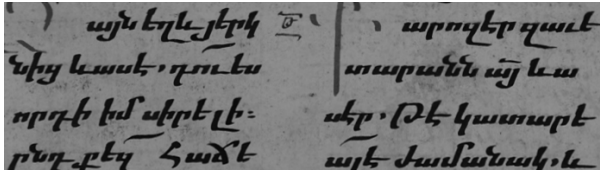 այն եղև յերկ
նից և ասէ. դու ես
որդի իմ սիրելի։
ընդ քեզ Հաճե
արոզէր զաւե
տարանն այ և ա
սէր. Թէ կատարե
ալ է ժամանակ. և